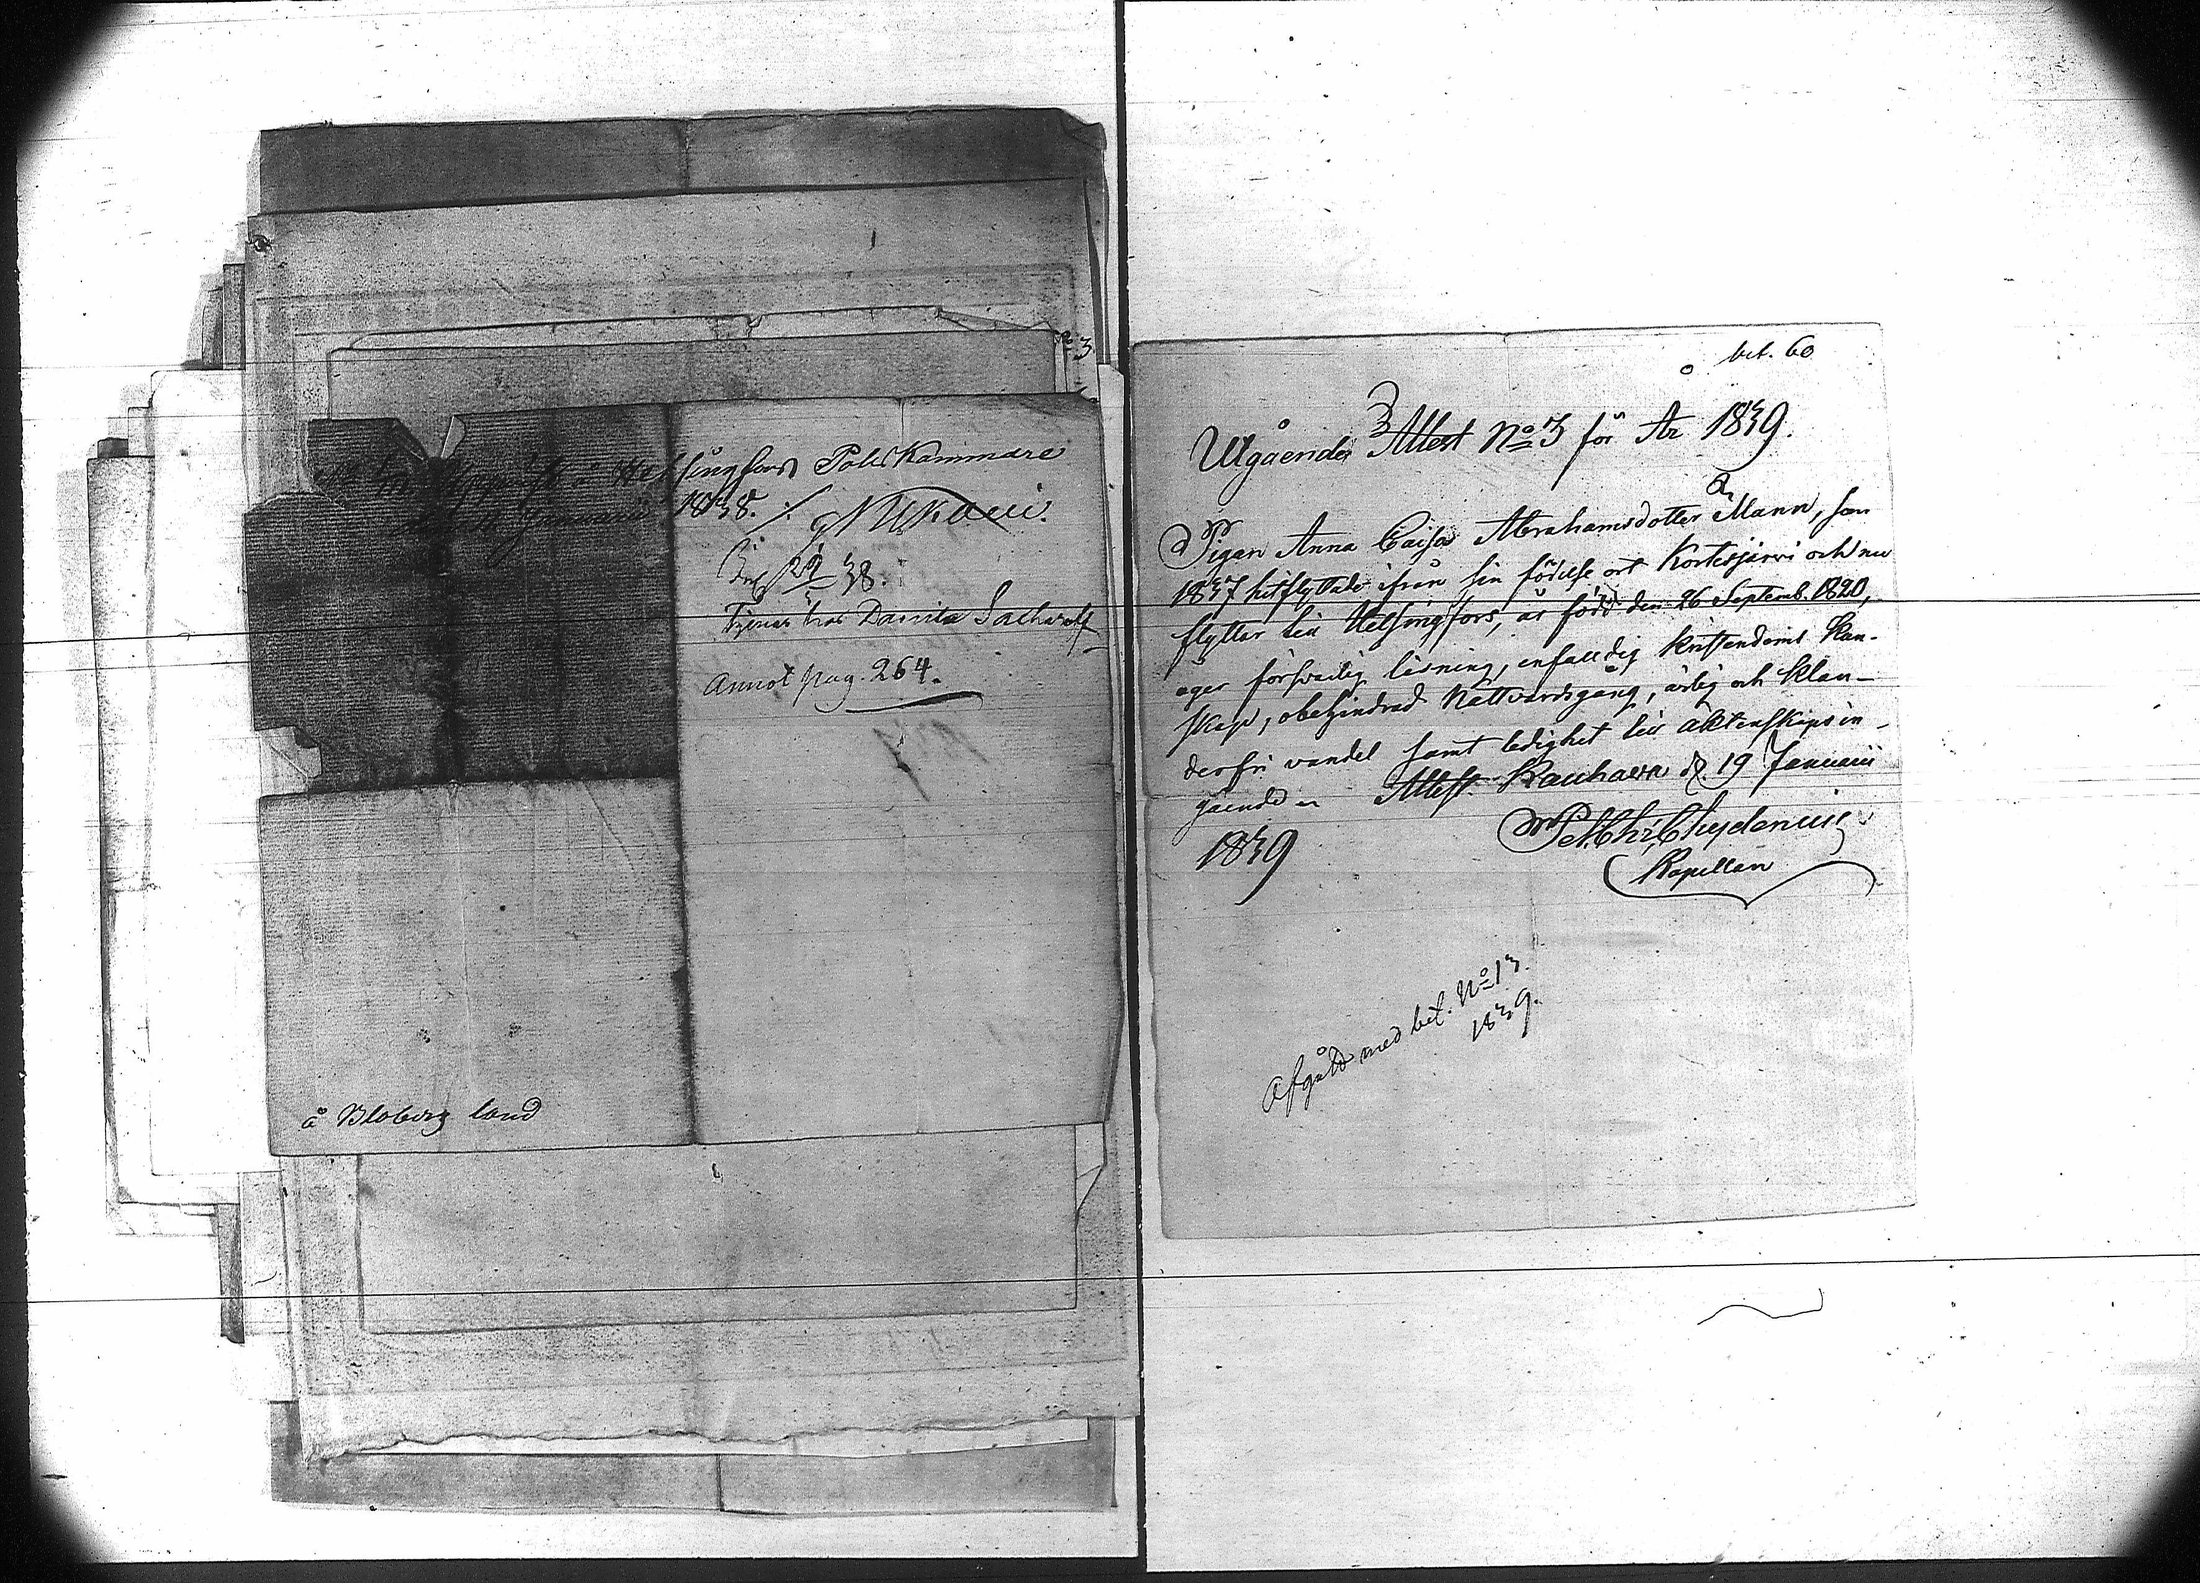 Helsingfors Polis Kammare
Januarii 1838.
d. 29/5 38.
Tjenar hos Danila
Annot pag. 264.
å Bloberg land
N:o 3.
bet. 60
Utgående Attest N:o 3 för År 1839.
Pigan Anna Caisa Abrahamsdotter Mann, som
1837 hitflyttade ifrån sin födelse ort Kortesjärvi och nu
flyttar till Helsingfors, är född den 26 Septemb. 1820,
äger försvarlig läsning, enfaldig Kristendoms Kun-
skap, obehindrad Nattvardsgång, ärlig och klan-
derfri vandel samt ledighet till äktenskaps in-
gående Attest. Kauhava d. 19 Januarii
1839
Pet. Chr. Chydenius
Kapellan
Afgått med bet. N:o 13.
1839.